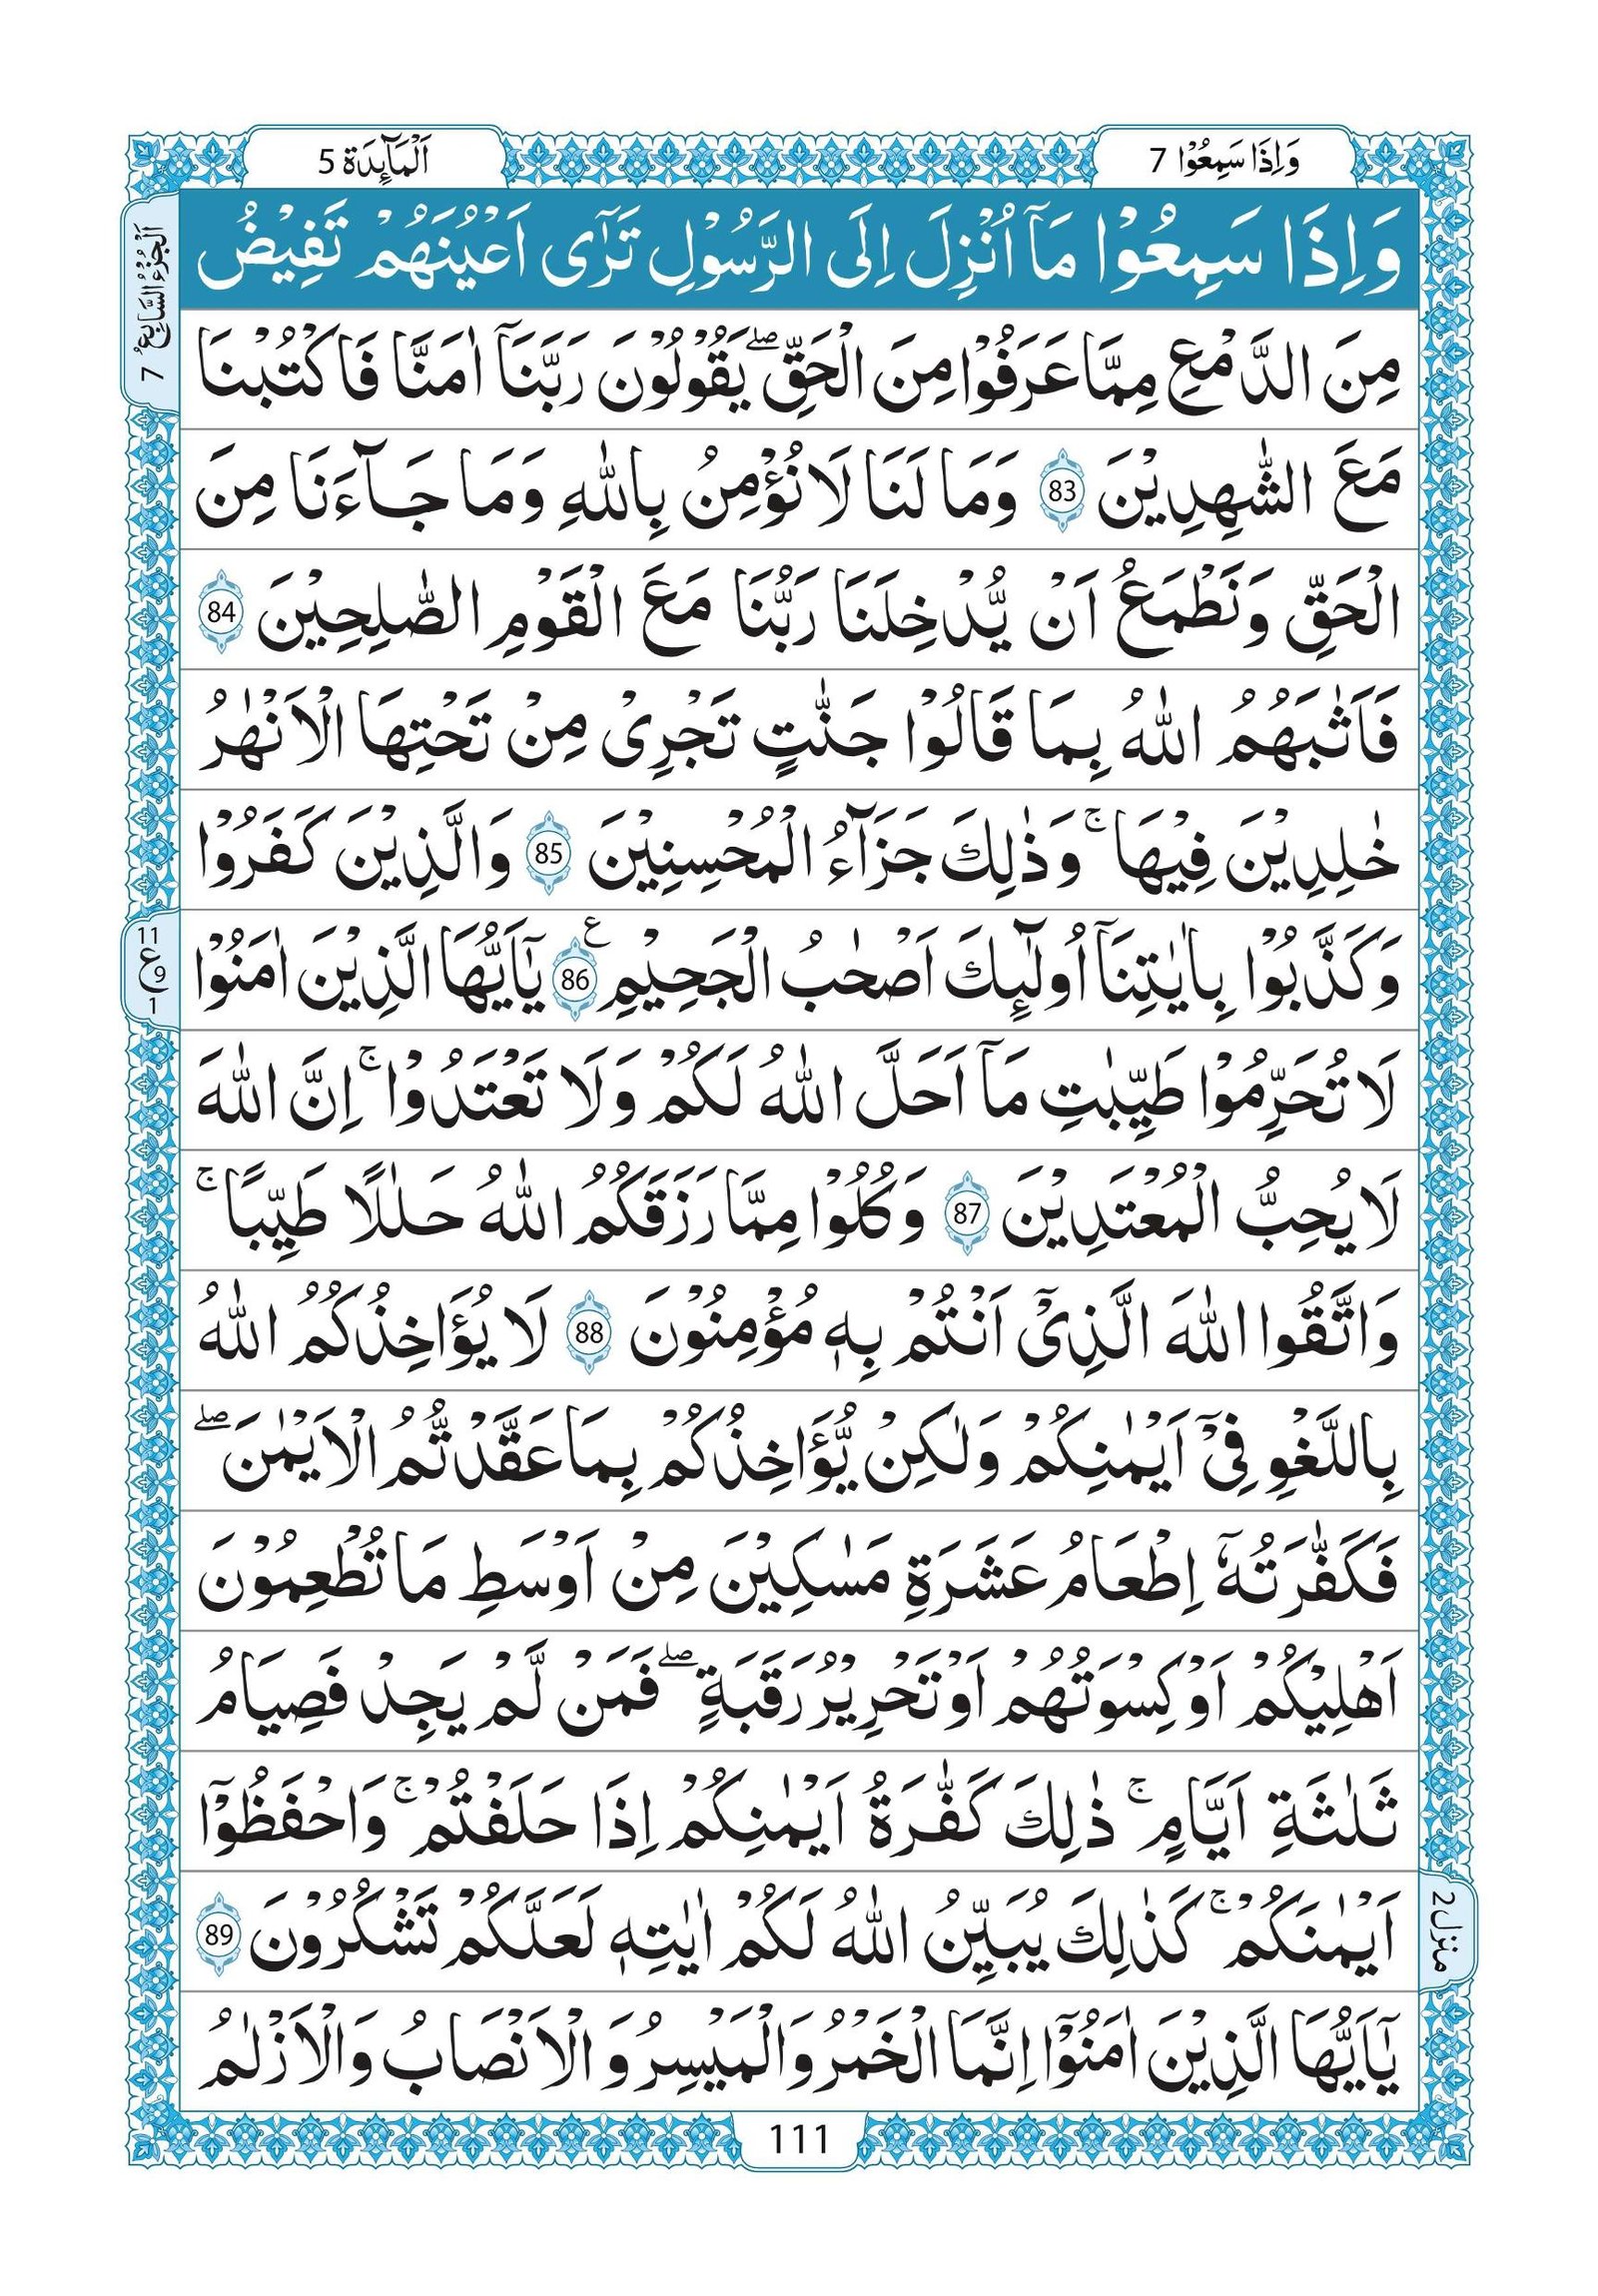 وَاِذَا سَمِعُوْا 7
اَلْمَآئِدَة 5
اَلْجُزْءُ السَّابِعُ 7
وَاِذَا سَمِعُوْا مَآ اُنْزِلَ اِلَى الرَّسُوْلِ تَرٰٓى اَعْيُنَهُمْ تَفِيْضُ
مِنَ الدَّمْعِ مِمَّا عَرَفُوْا مِنَ الْحَقِّ ۖ يَقُوْلُوْنَ رَبَّنَآ اٰمَنَّا فَاكْتُبْنَا
مَعَ الشّٰهِدِيْنَ 83 وَمَا لَنَا لَا نُؤْمِنُ بِاللّٰهِ وَمَا جَآءَنَا مِنَ
الْحَقِّ وَنَطْمَعُ اَنْ يُّدْخِلَنَا رَبُّنَا مَعَ الْقَوْمِ الصّٰلِحِيْنَ 84
فَاَثٰبَهُمُ اللّٰهُ بِمَا قَالُوْا جَنّٰتٍ تَجْرِىْ مِنْ تَحْتِهَا الْاَنْهٰرُ
خٰلِدِيْنَ فِيْهَا ۚ وَذٰلِكَ جَزَآءُ الْمُحْسِنِيْنَ 85 وَالَّذِيْنَ كَفَرُوْا
وَكَذَّبُوْا بِاٰيٰتِنَآ اُولٰٓئِكَ اَصْحٰبُ الْجَحِيْمِ ع 86 يٰٓاَيُّهَا الَّذِيْنَ اٰمَنُوْا
11 ع 9 1
لَا تُحَرِّمُوْا طَيِّبٰتِ مَآ اَحَلَّ اللّٰهُ لَكُمْ وَلَا تَعْتَدُوْا ۚ اِنَّ اللّٰهَ
لَا يُحِبُّ الْمُعْتَدِيْنَ 87 وَكُلُوْا مِمَّا رَزَقَكُمُ اللّٰهُ حَلٰلًا طَيِّبًا ۚ
وَاتَّقُوا اللّٰهَ الَّذِىْٓ اَنْتُمْ بِهٖ مُؤْمِنُوْنَ 88 لَا يُؤَاخِذُكُمُ اللّٰهُ
بِاللَّغْوِ فِىْٓ اَيْمٰنِكُمْ وَلٰكِنْ يُّؤَاخِذُكُمْ بِمَا عَقَّدْتُّمُ الْاَيْمٰنَ ۖ
فَكَفّٰرَتُهٗٓ اِطْعَامُ عَشَرَةِ مَسٰكِيْنَ مِنْ اَوْسَطِ مَا تُطْعِمُوْنَ
اَهْلِيْكُمْ اَوْ كِسْوَتُهُمْ اَوْ تَحْرِيْرُ رَقَبَةٍ ۖ فَمَنْ لَّمْ يَجِدْ فَصِيَامُ
ثَلٰثَةِ اَيَّامٍ ۚ ذٰلِكَ كَفّٰرَةُ اَيْمٰنِكُمْ اِذَا حَلَفْتُمْ ۚ وَاحْفَظُوْٓا
اَيْمٰنَكُمْ ۚ كَذٰلِكَ يُبَيِّنُ اللّٰهُ لَكُمْ اٰيٰتِهٖ لَعَلَّكُمْ تَشْكُرُوْنَ 89
منزل 2
يٰٓاَيُّهَا الَّذِيْنَ اٰمَنُوْٓا اِنَّمَا الْخَمْرُ وَالْمَيْسِرُ وَ الْاَنْصَابُ وَالْاَزْلٰمُ
111